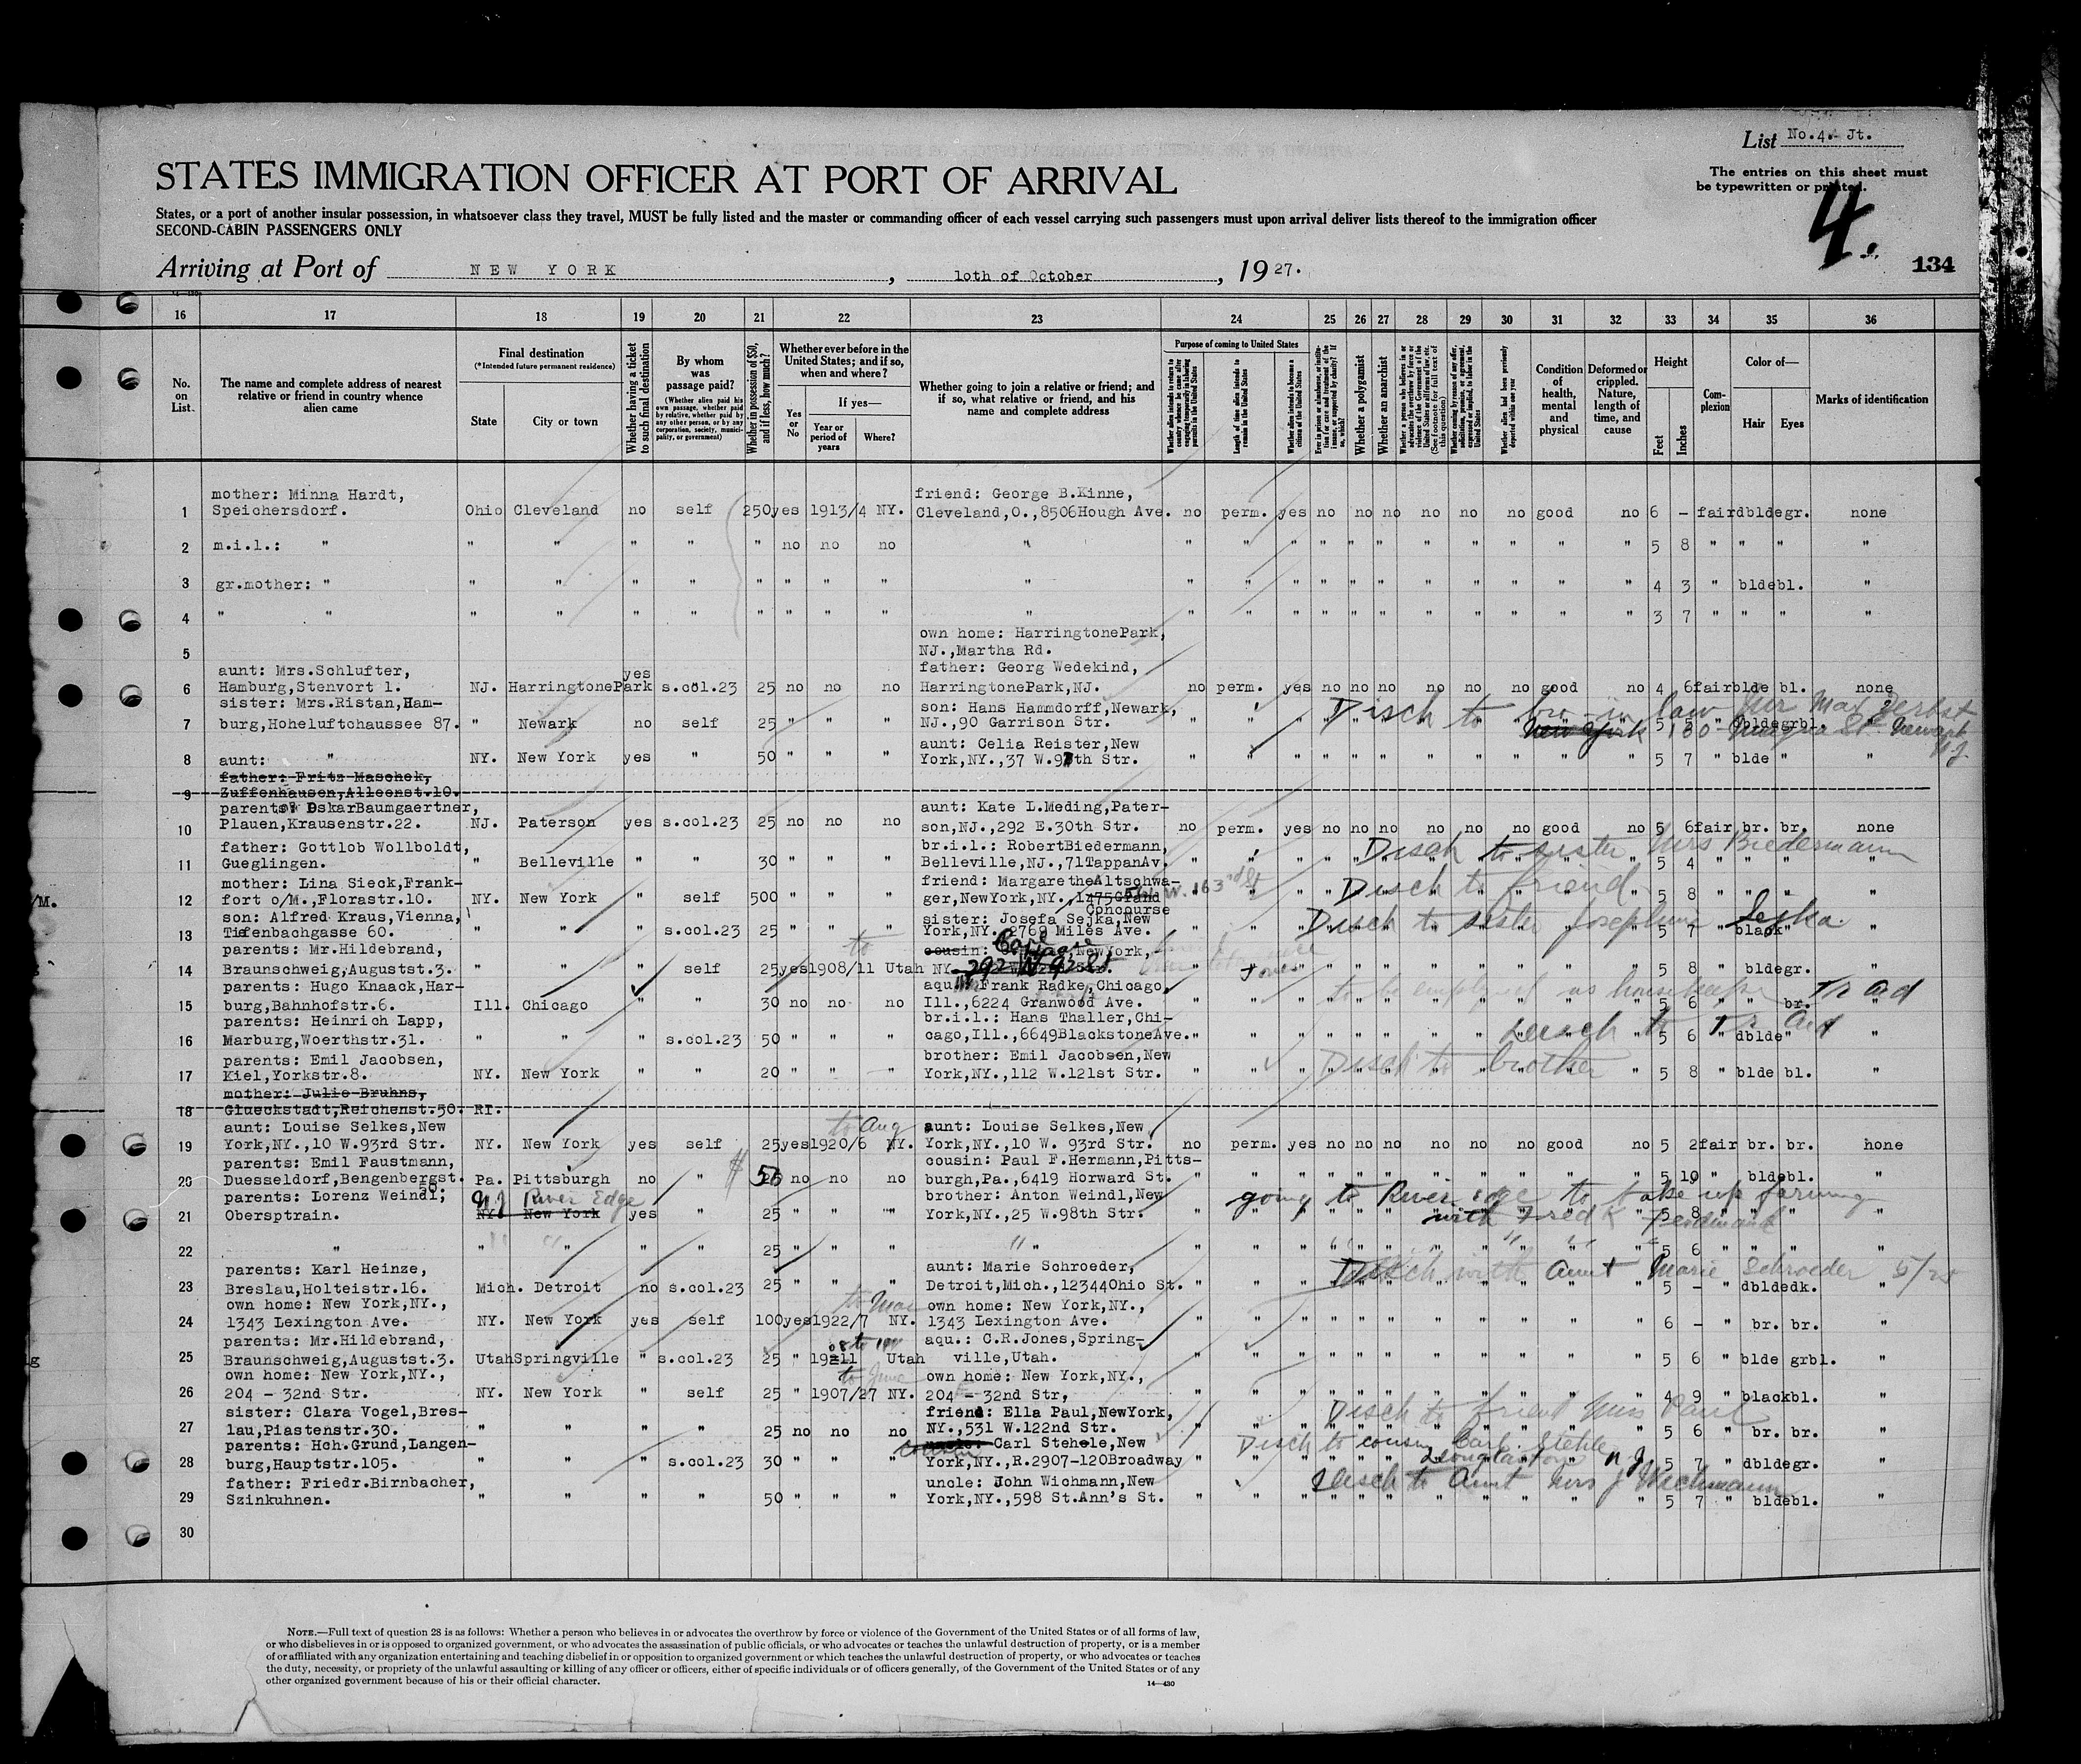 List No.4. Jt.
STATES IMMIGRATION OFFICER AT PORT OF ARRIVAL
The entries on this sheet must
be typewritten or printed.
States, or a port of another insular possession, in whatsoever class they travel, MUST be fully listed and the master or commanding officer of each vessel carrying such passengers must upon arrival deliver lists thereof to the immigration officer
SECOND-CABIN PASSENGERS ONLY
4.
Arriving at Port of NEW YORK, 1oth of October, 1927.
134
16 17 18 19 20 21 22 23 24 25 26 27 28 29 30 31 32 33 34 35 36
No. on List.
The name and complete address of nearest relative or friend in country whence alien came
Final destination
(*Intended future permanent residence)
State
City or town
Whether having a ticket to such final destination
By whom was passage paid?
(Whether alien paid his own passage, whether paid by relative, whether paid by any other person, or by any corporation, society, municipality, or government)
Whether in possession of $50, and if less, how much?
Whether ever before in the United States; and if so, when and where?
Yes or No
If yes—
Year or period of years
Where?
Whether going to join a relative or friend; and if so, what relative or friend, and his name and complete address
Purpose of coming to United States
Length of time alien intends to remain in the United States
Whether alien intends to become a citizen of the United States
Whether a polygamist
Whether an anarchist
Condition of health, mental and physical
Deformed or crippled. Nature, length of time, and cause
Height
Feet
Inches
Complexion
Color of—
Hair
Eyes
Marks of identification
mother: Minna Hardt, friend: George B.Kinne,
1 Speichersdorf. Ohio Cleveland no self 250 yes 1913/4 NY. Cleveland,O.,8506Hough Ave. no perm. yes no no no no no no good no 6 - fair dblde gr. none
2 m.i.l.: " " " " " " no no no " " " " " " " " " " " " 5 8 " " " "
3 gr.mother: " " " " " " " " " " " " " " " " " " " " " 4 3 " blde bl. "
4 " " " " " " " " " " " " " " " " " " " " " " 3 7 " " " "
own home: HarringtonePark,
5 NJ.,Martha Rd.
aunt: Mrs.Schlufter, yes father: Georg Wedekind,
6 Hamburg,Stenvort 1. NJ. HarringtonePark s.col.23 25 no no no HarringtonePark,NJ. no perm. yes no no no no no no good no 4 6 fair blde bl. none
sister: Mrs.Ristan,Ham- son: Hans Hammdorff,Newark, Disch to bro-in law Mr Max Zerbst
7 burg,Hoheluftchaussee 87. " Newark no self 25 " " " NJ.,90 Garrison Str. " " " " " " " " " " " 5 5 " dblde grbl. "
New York Newark N.J.
aunt: Celia Reister,New
8 aunt: " NY. New York yes " 50 " " " York,NY.,37 W.97th Str. " " " " " " " " " " " 5 7 " blde " "
father: Fritz Maschek,
9 Zuffenhausen,Alleenst.10.
parents: OskarBaumgaertner, aunt: Kate L.Meding,Pater-
10 Plauen,Krausenstr.22. NJ. Paterson yes s.col.23 25 no no no son,NJ.,292 E.30th Str. no perm. yes no no no no no no good no 5 6 fair br. br. none
father: Gottlob Wollboldt, br.i.l.: RobertBiedermann, Disch to sister Mrs Biedermann
11 Gueglingen. " Belleville " " 30 " " " Belleville,NJ.,71TappanAv. " " " " " " " " " " " 5 4 " " " "
mother: Lina Sieck,Frank- friend: MargaretheAltschwa- W. 163rd St Disch to friend
12 fort o/M.,Florastr.10. NY. New York " self 500 " " " ger,NewYork,NY.,1475Grand Concourse " " " " " " " " " " " 5 8 " " " "
son: Alfred Kraus,Vienna, sister: Josefa Sejka,New Disch to sister Josephine Sejka.
13 Tiefenbachgasse 60. " " " s.col.23 25 " " " York,NY.,2769 Miles Ave. " " " " " " " " " " " 5 7 " black " "
parents: Mr.Hildebrand, to cousin: NewYork,
14 Braunschweig,Augustst.3. " " " self 25 yes 1908/11 Utah NY. 292 W 92 St " " " " " " " " " " 5 8 " blde gr. "
parents: Hugo Knaack,Har- aqu.: Frank Radke,Chicago, to be employed as housekeeper Tr Aid
15 burg,Bahnhofstr.6. Ill. Chicago " " 30 no no no Ill.,6224 Granwood Ave. " " " " " " " " " " " 5 6 " " br. "
parents: Heinrich Lapp, br.i.l.: Hans Thaller,Chi- Disch to Tr Aid
16 Marburg,Woerthstr.31. " " " s.col.23 50 " " " cago,Ill.,6649BlackstoneAve. " " " " " " " " " " " 5 6 " dblde " "
parents: Emil Jacobsen, brother: Emil Jacobsen,New Disch to brother
17 Kiel,Yorkstr.8. NY. New York " " 20 " " " York,NY.,112 W.121st Str. " " " " " " " " " " " 5 8 " blde bl. "
mother: Julie Bruhns,
18 Glueckstadt,Reichenst.50. RI.
aunt: Louise Selkes,New to Aug aunt: Louise Selkes,New
19 York,NY.,10 W.93rd Str. NY. New York yes self 25 yes 1920/6 NY. York,NY.,10 W. 93rd Str. no perm. yes no no no no no no good no 5 2 fair br. br. hone
parents: Emil Faustmann, cousin: Paul F.Hermann,Pitts-
20 Duesseldorf,Bengenbergst. 50. Pa. Pittsburgh no " $ 50 no no no burgh,Pa.,6419 Horward St. " " " " " " " " " " " 5 10 " blde bl. "
parents: Lorenz Weindl, NJ River Edge brother: Anton Weindl,New going to River edge to take up farming
21 Obersptrain. NY. New York yes " 25 " " " York,NY.,25 W.98th Str. " " " " " " " " " " " 5 8 " " " "
with Fredk Ferdinand
22 " " " " " 25 " " " " " " " " " " " " " " " " 5 6 " " " "
parents: Karl Heinze, aunt: Marie Schroeder, Disch with Aunt Marie Schroeder
23 Breslau,Holteistr.16. Mich. Detroit no s.col.23 25 " " " Detroit,Mich.,12344Ohio St. " " " " " " " " " " " 5 - dblde dk. "
own home: New York,NY., to Mar own home: New York,NY.,
24 1343 Lexington Ave. NY. New York yes self 100 yes 1922/7 NY. 1343 Lexington Ave. " " " " " " " " " " " 6 - " br. br. "
parents: Mr.Hildebrand, 08 to 1911 aqu.: C.R.Jones,Spring-
25 Braunschweig,Augustst.3. Utah Springville " s.col.23 25 " Utah ville,Utah. " " " " " " " " " " " 5 6 " blde grbl. "
own home: New York,NY., to June own home: New York,NY.,
26 204 - 32nd Str. NY. New York " self 25 " 1907/27 NY. 204 - 32nd Str, " " " " " " " " " " " 4 9 " black bl. "
sister: Clara Vogel,Bres- friend: Ella Paul,NewYork, Disch to friend Miss Paul
27 lau,Piastenstr.30. " " " " 25 no no no NY.,531 W.122nd Str. " " " " " " " " " " " 5 6 " br. br. "
parents: Hch.Grund,Langen- cousin Carl Stehele,New Disch to cousin Carl Stehle
28 burg,Hauptstr.105. " " " s.col.23 30 " " " York,NY.,R.2907-120Broadway N.J. " " " " " " " " " " 5 7 " dblde gr. "
father: Friedr.Birnbacher, uncle: John Wichmann,New Disch to Aunt Mrs J Wichmann
29 Szinkuhnen. " " " " 50 " " " York,NY.,598 St.Ann's St. " " " " " " " " " " " 5 7 " blde bl. "
30
NOTE.—Full text of question 28 is as follows: Whether a person who believes in or advocates the overthrow by force or violence of the Government of the United States or of all forms of law,
or who disbelieves in or is opposed to organized government, or who advocates the assassination of public officials, or who advocates or teaches the unlawful destruction of property, or is a member
of or affiliated with any organization entertaining and teaching disbelief in or opposition to organized government or which teaches the unlawful destruction of property, or who advocates or teaches
the duty, necessity, or propriety of the unlawful assaulting or killing of any officer or officers, either of specific individuals or of officers generally, of the Government of the United States or of any
other organized government because of his or their official character.
14—430